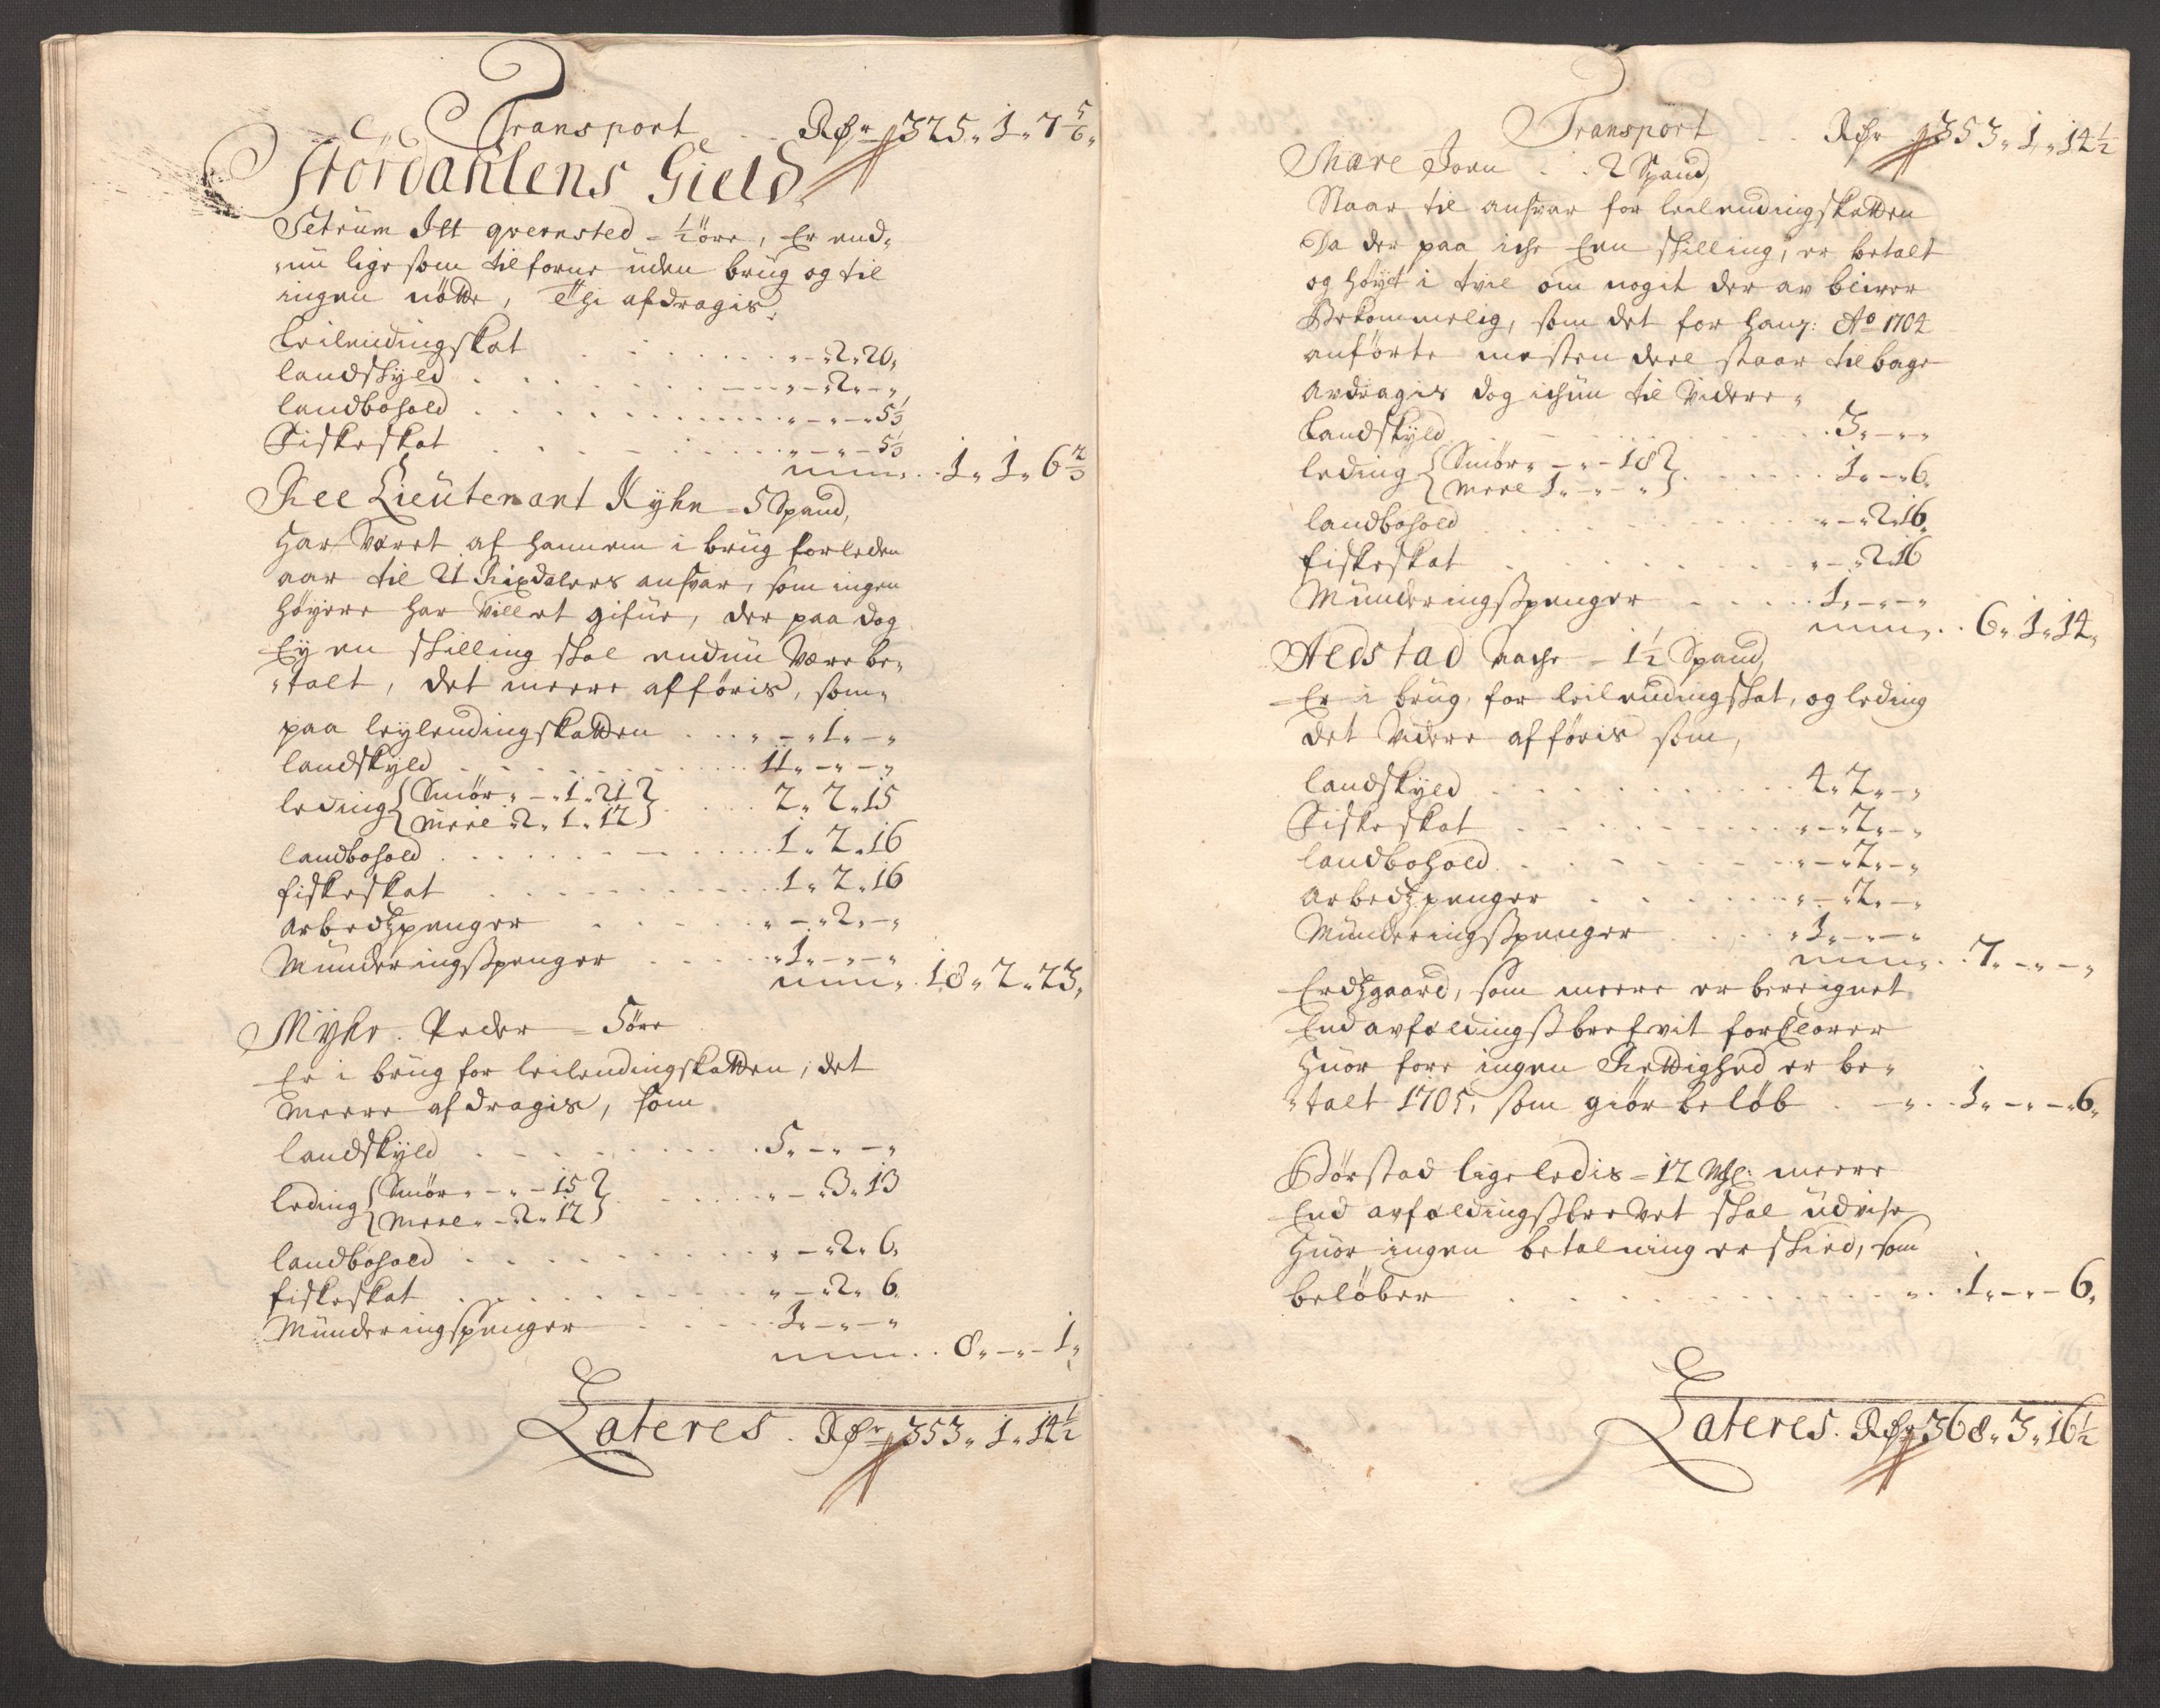 Transport . . Rdr 325„ 1„ 7 5/6„
Stördahlens Gield
Setrum Itt qvernsted = ½ öre, Er end„
„nu lige som tilforne uden brug og til
ingen nötte, Thi afdragis:
Leilendingskat . . . „ – „ 2„ 20„
landskyld . . . „ – „ 2„ – „
landbohold . . . „ – „ – „ 5⅓
Fiskeskat . . . „ – „ – 5⅓
1„ 1„ 6⅔
Ree Lieutenant Kyhn = 5 Spand,
Har Været af hannem i brug forleden
aar til 21 Rixdalers ansvar, som ingen
höyere har Villet gifue, der paa dog
Ey en skilling skal endnu Være be„
„talt, det meere afföris, som„
paa leylendingskatten . . . „ – „ 1„ – „
landskyld . . . 11„ – „ – „
leding { Smör„ – „ 1„ 21 } . . . 2„ 2„ 15
{ Meel 2„ 1„ 12 }
landbohold . . . 1„ 2„ 16
fiskeskat . . . 1„ 2„ 16
arbedtzpenger . . . „ – „ 2„ – „
Munderingsspenger . . . „ 1„ – „ – „
18„ 2„ 23„
Myhr . Peder = 5 öre
Er i brug for leilendingskatten, det
meere afdragis, som
landskyld . . . 5„ – „ – „
leding { Smör„ – „ – 15 } . . . „ – „ 3„ 13
{ Meel„ – 2„ 12 }
landbohold . . . „ – „ 2„ 6„
fiskeskat . . . „ – „ 2„ 6„
Munderingspenger . . . 1„ – „ – „
8„ – „ – 1„
Lateres . Rdr 353„ 1„ 14½
Transport . . Rdr 353„ 1„ 14½
Mære Joen . . 2 Spand,
Staar til ansvar for leilendingskatten
Da der paa iche Een skilling, er betalt
og höyt i tvil om nogit der av bliver
Bekommelig, som det for hans: Ao 1704
anförte mesten deel staar tilbage
avdragis dog ichun til Videre„
Landskyld . . . 3„ – „ – „
leding { Smör„ – „ – 18 } . . . 1„ – „ 6„
{ Meel 1„ – „ – „ }
landbohold . . . „ – „ 2„ 16„
fiskeskat . . . „ – „ 2„ 16
Munderingsspenger . . . 1„ – „ – „
6„ 1„ 14„
Aldstad – 1½ Spand,
Er i brug, for leilendingskat, og leding
det videre afföris som,
landskyld . . . 4„ 2„ – „
Fiskeskat . . . „ – „ 2„ – „
landbohold . . . „ – „ 2„ – „
arbedtzpenger . . . „ – „ 2„ – „
Munderingsspenger . . . „ 1„ – „ – „
7„ – „ – „
Erdtzgaard, som meere er bereignet
End avfældingsbrefvit forklarer
Huor fore ingen Rettighed er be„
„talt 1705, som giör belöb . – „ . 1„ – „ – „ 6„
Börstad ligeledis = 12 meere
End avfældingsbrevet skal udvise
Huor ingen betalning er skied, som
belöber . . . „ . 1„ – „ – 6„
Lateres . Rdr 368„ 3„ 16½